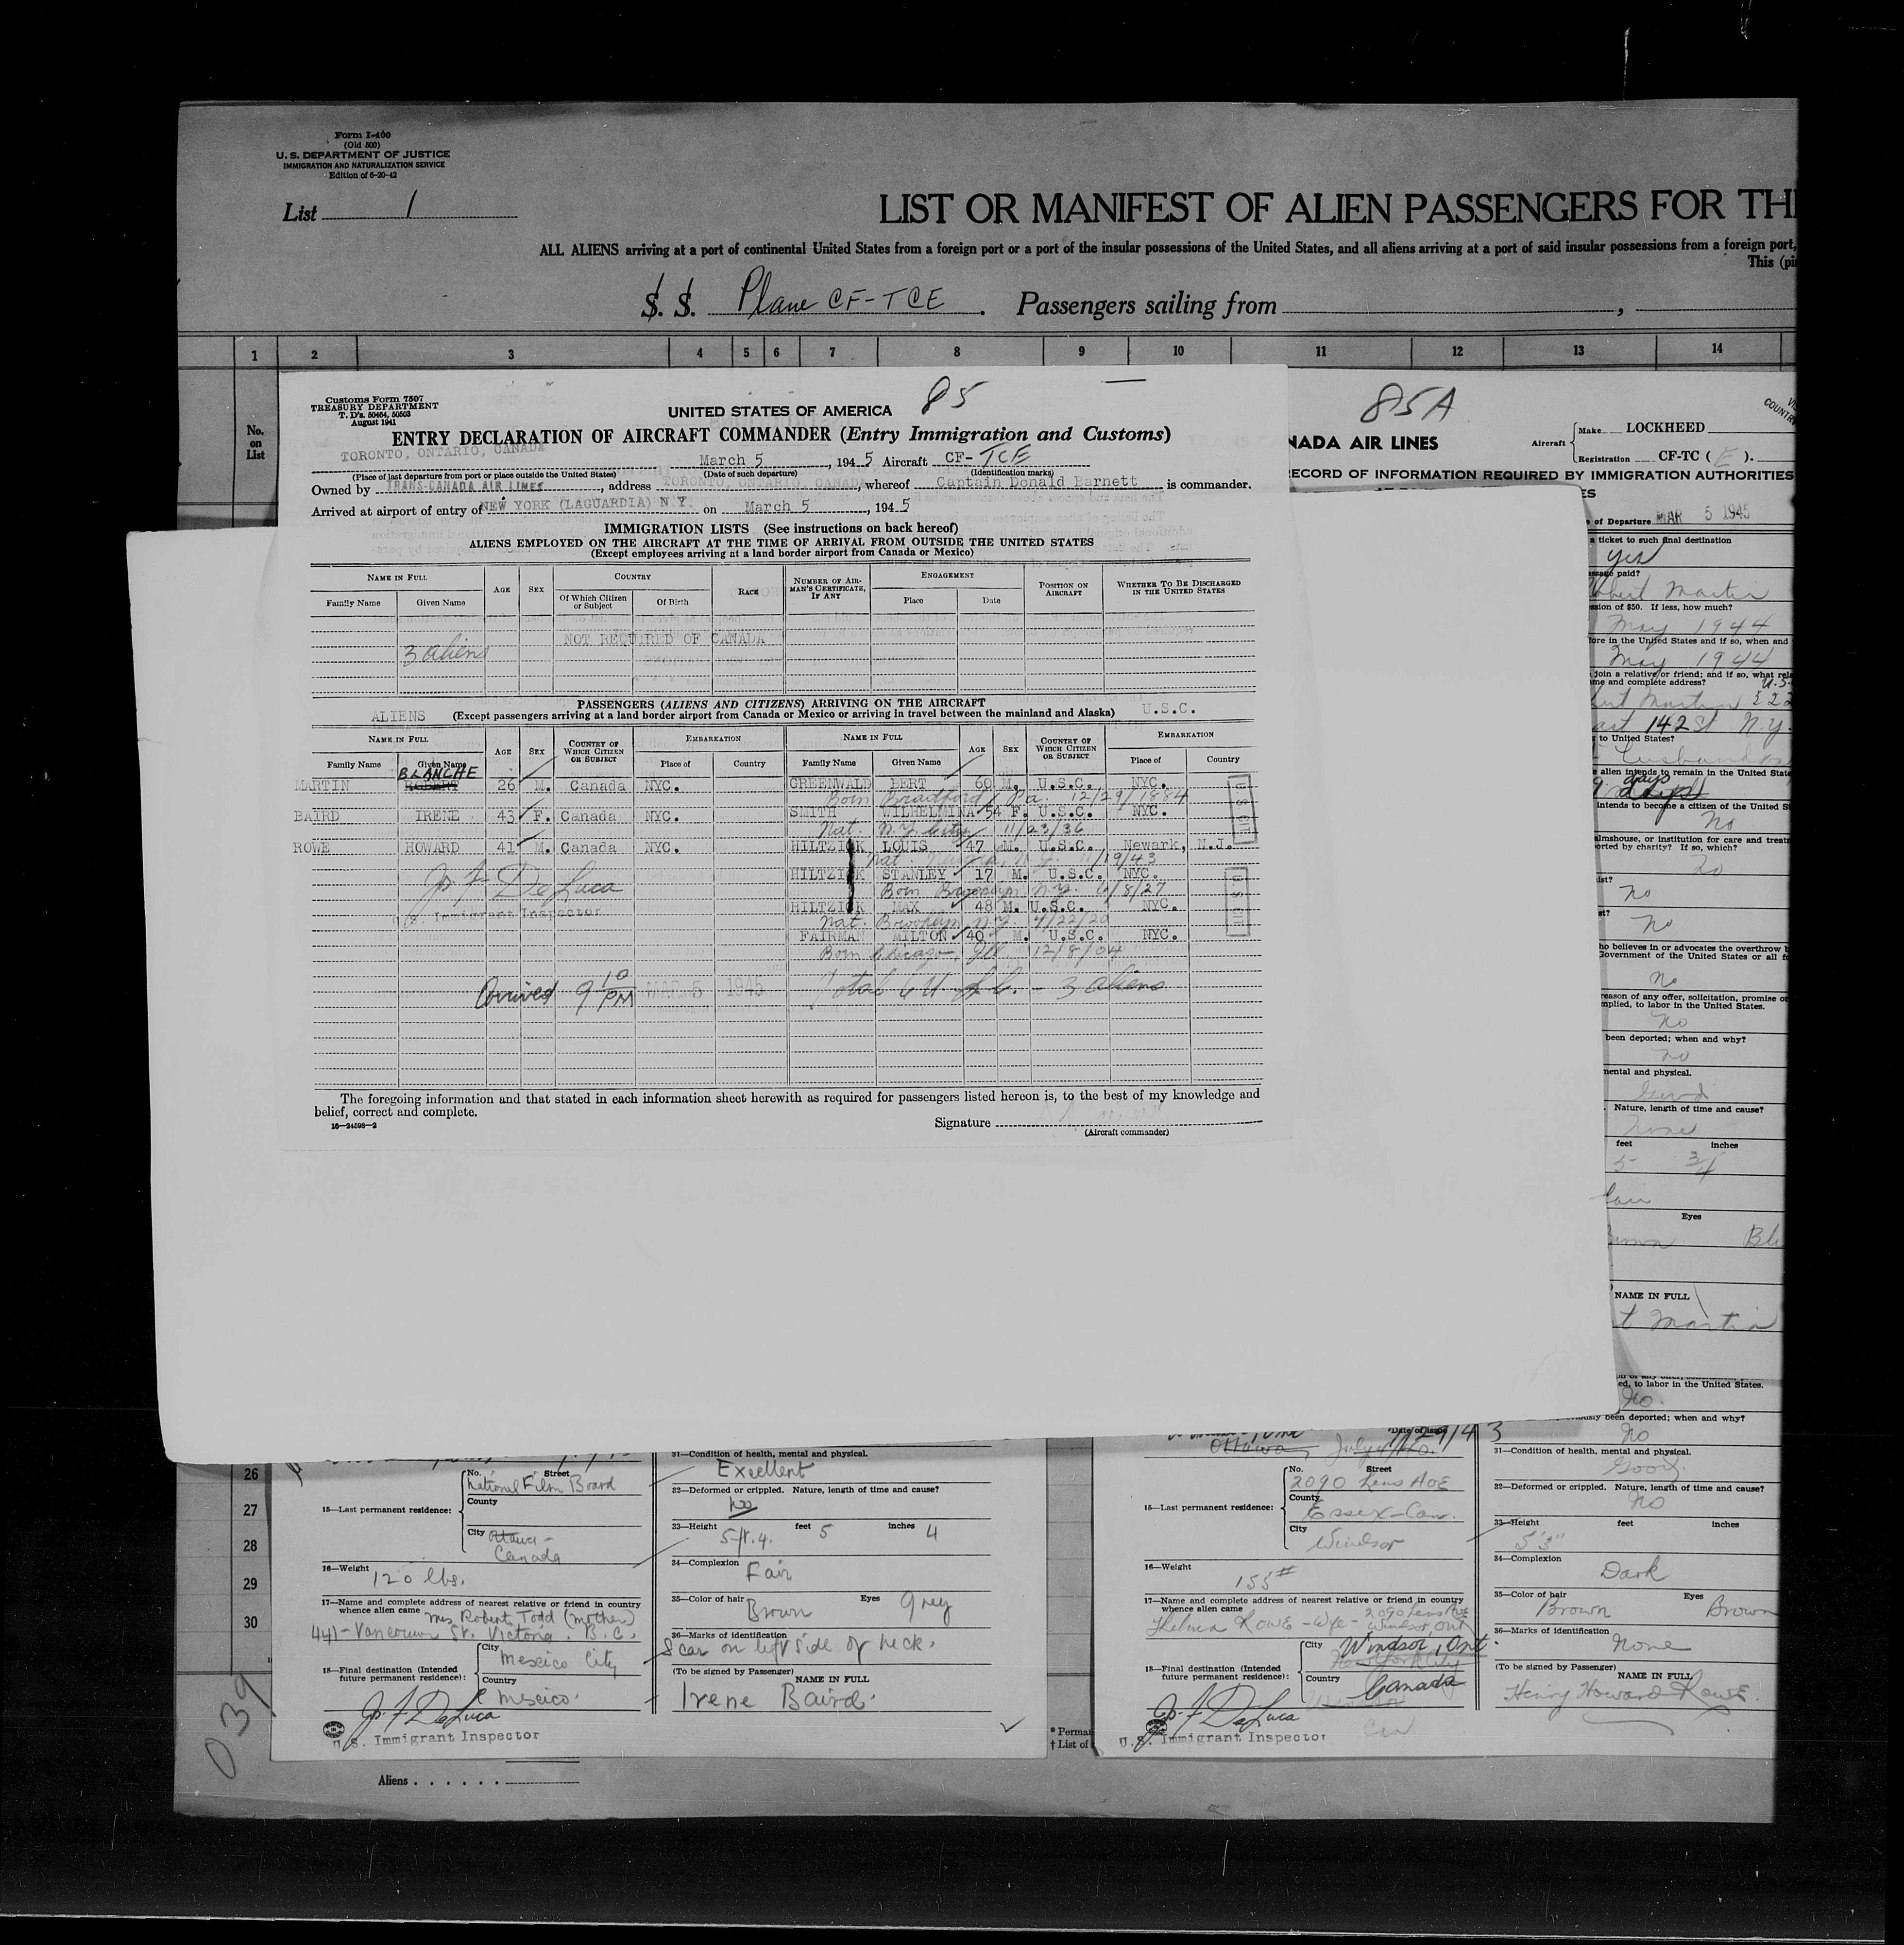 Form I-400
(Old 500)
U. S. DEPARTMENT OF JUSTICE
IMMIGRATION AND NATURALIZATION SERVICE
Edition of 6-20-42
List 1
LIST OR MANIFEST OF ALIEN PASSENGERS FOR TH
ALL ALIENS arriving at a port of continental United States from a foreign port or a port of the insular possessions of the United States, and all aliens arriving at a port of said insular possessions from a foreign port,
This (pi
S. S. Plane CF-TCE . Passengers sailing from ,
1 2 3 4 5 6 7 8 9 10 11 12 13 14
No. on List
Customs Form 7507
TREASURY DEPARTMENT
T. D's. 50464, 50503
August 1941
85
UNITED STATES OF AMERICA
ENTRY DECLARATION OF AIRCRAFT COMMANDER (Entry Immigration and Customs)
TORONTO, ONTARIO, CANADA March 5, 1945 Aircraft CF-TCE
(Place of last departure from port or place outside the United States) (Date of such departure) (Identification marks)
Owned by TRANS-CANADA AIR LINES, address TORONTO, ONTARIO, CANADA, whereof Captain Donald Barnett is commander.
Arrived at airport of entry of NEW YORK (LAGUARDIA) N.Y. on March 5, 1945
IMMIGRATION LISTS (See instructions on back hereof)
ALIENS EMPLOYED ON THE AIRCRAFT AT THE TIME OF ARRIVAL FROM OUTSIDE THE UNITED STATES
(Except employees arriving at a land border airport from Canada or Mexico)
NAME IN FULL AGE SEX COUNTRY RACE NUMBER OF AIRMAN'S CERTIFICATE, IF ANY ENGAGEMENT POSITION ON AIRCRAFT WHETHER TO BE DISCHARGED IN THE UNITED STATES
Family Name Given Name Of Which Citizen or Subject Of Birth Place Date
NOT REQUIRED OF CANADA
3 aliens
PASSENGERS (ALIENS AND CITIZENS) ARRIVING ON THE AIRCRAFT
ALIENS (Except passengers arriving at a land border airport from Canada or Mexico or arriving in travel between the mainland and Alaska) U.S.C.
NAME IN FULL AGE SEX COUNTRY OF WHICH CITIZEN OR SUBJECT EMBARKATION NAME IN FULL AGE SEX COUNTRY OF WHICH CITIZEN OR SUBJECT EMBARKATION
Family Name Given Name Place of Country Family Name Given Name Place of Country
BLANCHE
MARTIN ROBERT 26 M. Canada NYC. GREENWALD BERT 60 M. U.S.C. NYC.
Born Bradford Pa. 12/29/1884
BAIRD IRENE 43 F. Canada NYC. SMITH WILHELMINA 54 F. U.S.C. NYC.
Nat. N.Y. City 11/23/36
ROWE HOWARD 41 M. Canada NYC. HILTZICK LOUIS 47 M. U.S.C. Newark, N.J.
Nat. 11/19/43
HILTZICK STANLEY 17 M. U.S.C. NYC.
Jos F DeLuca
Born Brooklyn N.Y. 6/8/27
U.S. Immigrant Inspector
HILTZICK MAX 48 M. U.S.C. NYC.
Nat. Brooklyn N.Y. 4/22/20
FAIRMAN MILTON 40 M. U.S.C. NYC.
Born Chicago, Ill 12/8/04
Arrived 9 10 PM MAR 5 1945 Total 6 U.S.C. - 3 aliens
The foregoing information and that stated in each information sheet herewith as required for passengers listed hereon is, to the best of my knowledge and
belief, correct and complete.
16—24598-2
Signature
(Aircraft commander)
85A
NADA AIR LINES
Aircraft Make LOCKHEED
Registration CF-TC (E).
RECORD OF INFORMATION REQUIRED BY IMMIGRATION AUTHORITIES
of Departure MAR 5 1945
a ticket to such final destination
yes
paid?
Robert Martin
sion of $50. If less, how much?
May 1944
fore in the United States and if so, when and
May 1944
join a relative or friend; and if so, what rela
me and complete address?
U.S.
Martin 522
East 142 St N.Y.
to United States?
husband
alien intends to remain in the United State
days
intends to become a citizen of the United S
No
almshouse, or institution for care and treatm
orted by charity? If so, which?
No
No
No
ho believes in or advocates the overthrow b
Government of the United States or all f
No
reason of any offer, solicitation, promise or
mplied, to labor in the United States.
No
been deported; when and why?
No
mental and physical.
Good
Nature, length of time and cause?
None
feet inches
5 3/4
Fair
Eyes
Brown Bl
NAME IN FULL
t Martin
ed, to labor in the United States.
No.
been deported; when and why?
No
26
27
28
29
30
31—Condition of health, mental and physical.
Excellent
15—Last permanent residence:
No. Street
National Film Board
County
City Ottawa -
Canada
32—Deformed or crippled. Nature, length of time and cause?
No
33—Height feet inches
5 ft. 4. 5 4
16—Weight
120 lbs.
34—Complexion
Fair
17—Name and complete address of nearest relative or friend in country
whence alien came Mrs Robert Todd (mother)
441-Vancouver St. Victoria. B.C.
35—Color of hair Eyes
Brown Grey
36—Marks of identification
Scar on left side of neck.
18—Final destination (Intended
future permanent residence):
City
Mexico City
Country
Mexico.
(To be signed by Passenger) NAME IN FULL
Irene Baird.
Jos F DeLuca
U.S. Immigrant Inspector
039
Aliens . . . . . .
* Perma
† List of
Date of issue
Ottawa 9/29/43
15—Last permanent residence:
No. Street
2090 Lens Ave
County
Essex-Can.
City
Windsor
16—Weight
155#
17—Name and complete address of nearest relative or friend in country
whence alien came
Thelma Rowe - Wife - 2090 Lens Ave
Windsor, Ont
18—Final destination (Intended
future permanent residence):
City
Windsor, Ont.
New York City
Country
Canada
Jos F DeLuca
U.S. Immigrant Inspector
31—Condition of health, mental and physical.
Good
32—Deformed or crippled. Nature, length of time and cause?
No
33—Height feet inches
5'3"
34—Complexion
Dark
35—Color of hair Eyes
Brown Brown
36—Marks of identification
None
(To be signed by Passenger) NAME IN FULL
Henry Howard Rowe.